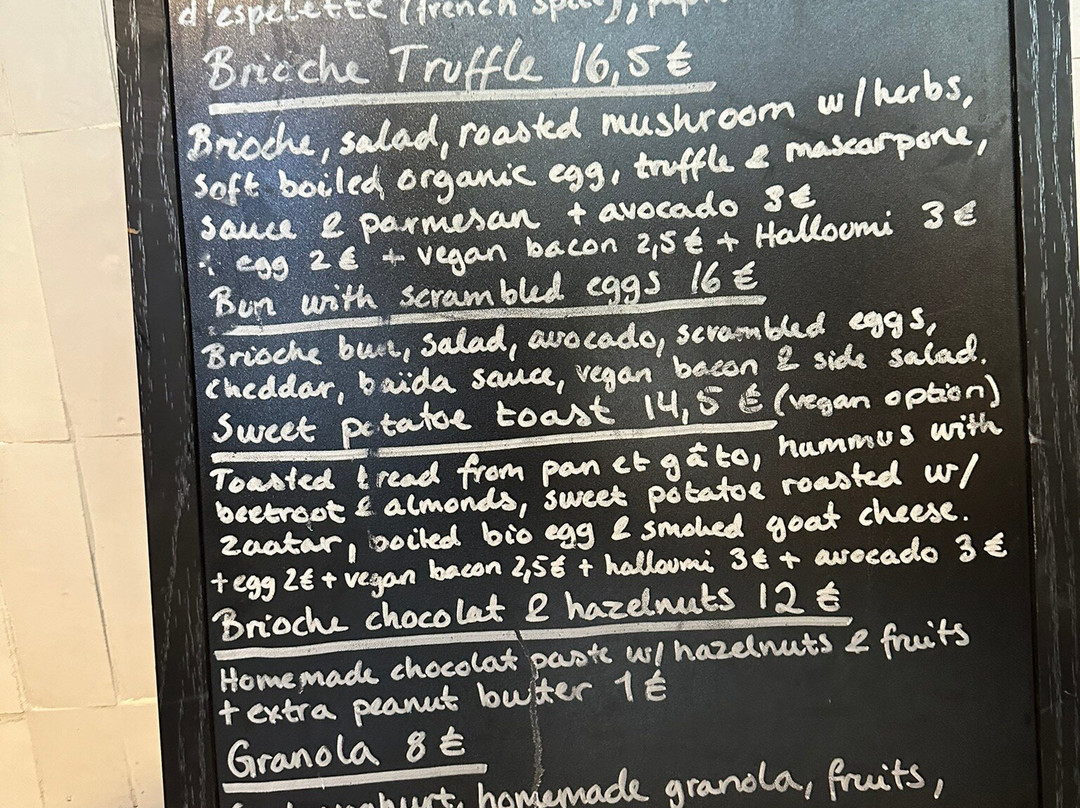 d'espelette (french spice),
Brioche Truffle 16,5 €
Brioche, salad, roasted mushroom w/herbs,
soft boiled organic egg, truffle & mascarpone,
sauce & parmesan + avocado 3€
+ egg 2€ + vegan bacon 2,5€ + Halloumi 3€
Bun with scrambled eggs 16€
Brioche bun, salad, avocado, scrambled eggs,
cheddar, baïda sauce, vegan bacon & side salad.
Sweet potatoe toast 14,5 € (vegan option)
Toasted bread from pan et gâto, hummus with
beetroot & almonds, sweet potatoe roasted w/
zaatar, boiled bio egg & smoked goat cheese.
+egg 2€ + vegan bacon 2,5€ + halloumi 3€ + avocado 3€
Brioche chocolat & hazelnuts 12 €
Homemade chocolat paste w/ hazelnuts & fruits
+ extra peanut butter 1€
Granola 8 €
homemade granola, fruits,